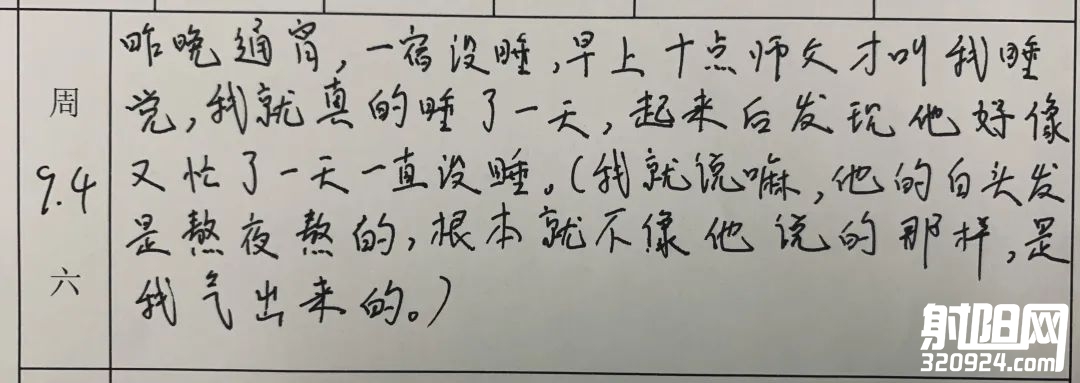 昨晚通宵,一宿没睡,早上十点师父才叫我睡
觉,我就真的睡了一天,起来后发现他好像
又忙了一天一直没睡。(我就说嘛,他的白头发
是熬夜熬的,根本就不像他说的那样,是
我气出来的。)
周
9.4
六
射阳网
320924.com